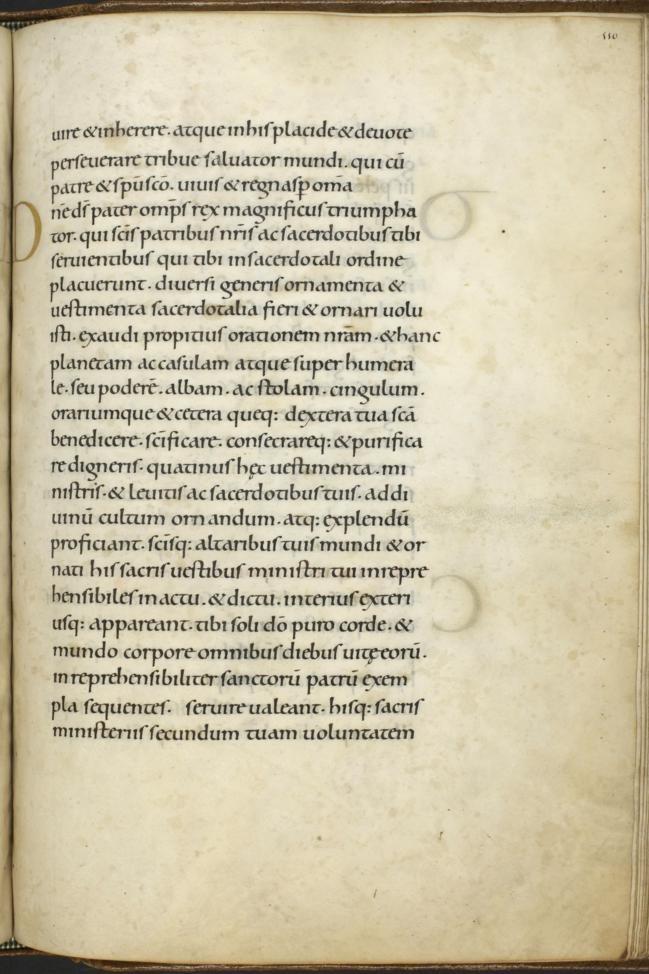 110
uire & inherere. atque in his placide & deuote
perseuerare tribue saluator mundi. qui cū
patre & sp̄u sc̄o. uiuis & regnas p̄ om̄a
D
n̄e ds̄ pater omp̄s rex magnificus triumpha
tor. qui sc̄is patribus nr̄is ac sacerdotibus tibi
seruientibus qui tibi in sacerdotali ordine
placuerunt. diuersi generis ornamenta &
uestimenta sacerdotalia fieri & ornari uolu
isti. exaudi propitius orationem nr̄am. & hanc
planetam ac casulam atque super humera
le. seu poderē. albam. ac stolam. cingulum.
orariumque & cetera queq: dextera tua sc̄a
benedicere. sc̄ificare. consecrareq: & purifica
re digneris. quatinus hęc uestimenta. mi
nistris. & leuitis ac sacerdotibus tuis. ad di
uinū cultum ornandum. atq: explendū
proficiant. sc̄isq: altaribus tuis mundi & or
nati his sacris uestibus ministri tui inrepre
hensibiles in actu. & dictu. interius exteri
usq: appareant. tibi soli dō puro corde. &
mundo corpore omnibus diebus uitę eorū.
inreprehensibiliter sanctorū patrū exem
pla sequentes. seruire ualeant. hisq: sacris
ministeriis secundum tuam uoluntatem